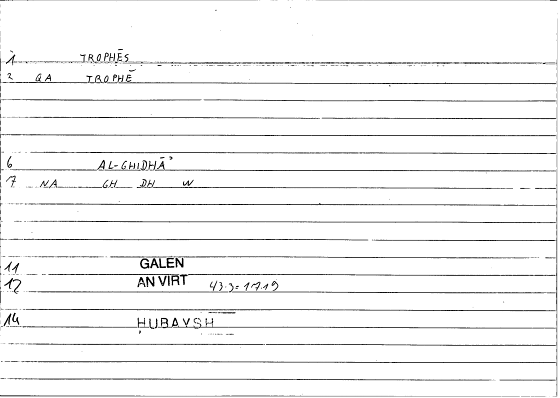 1 TROPHĒS
2 QA TROPHĒ
6 AL-GHIDHĀʾ
7 NA GH DH W
11 GALEN
12 AN VIRT 43.3 = 17.19
14 ḤUBAYSH